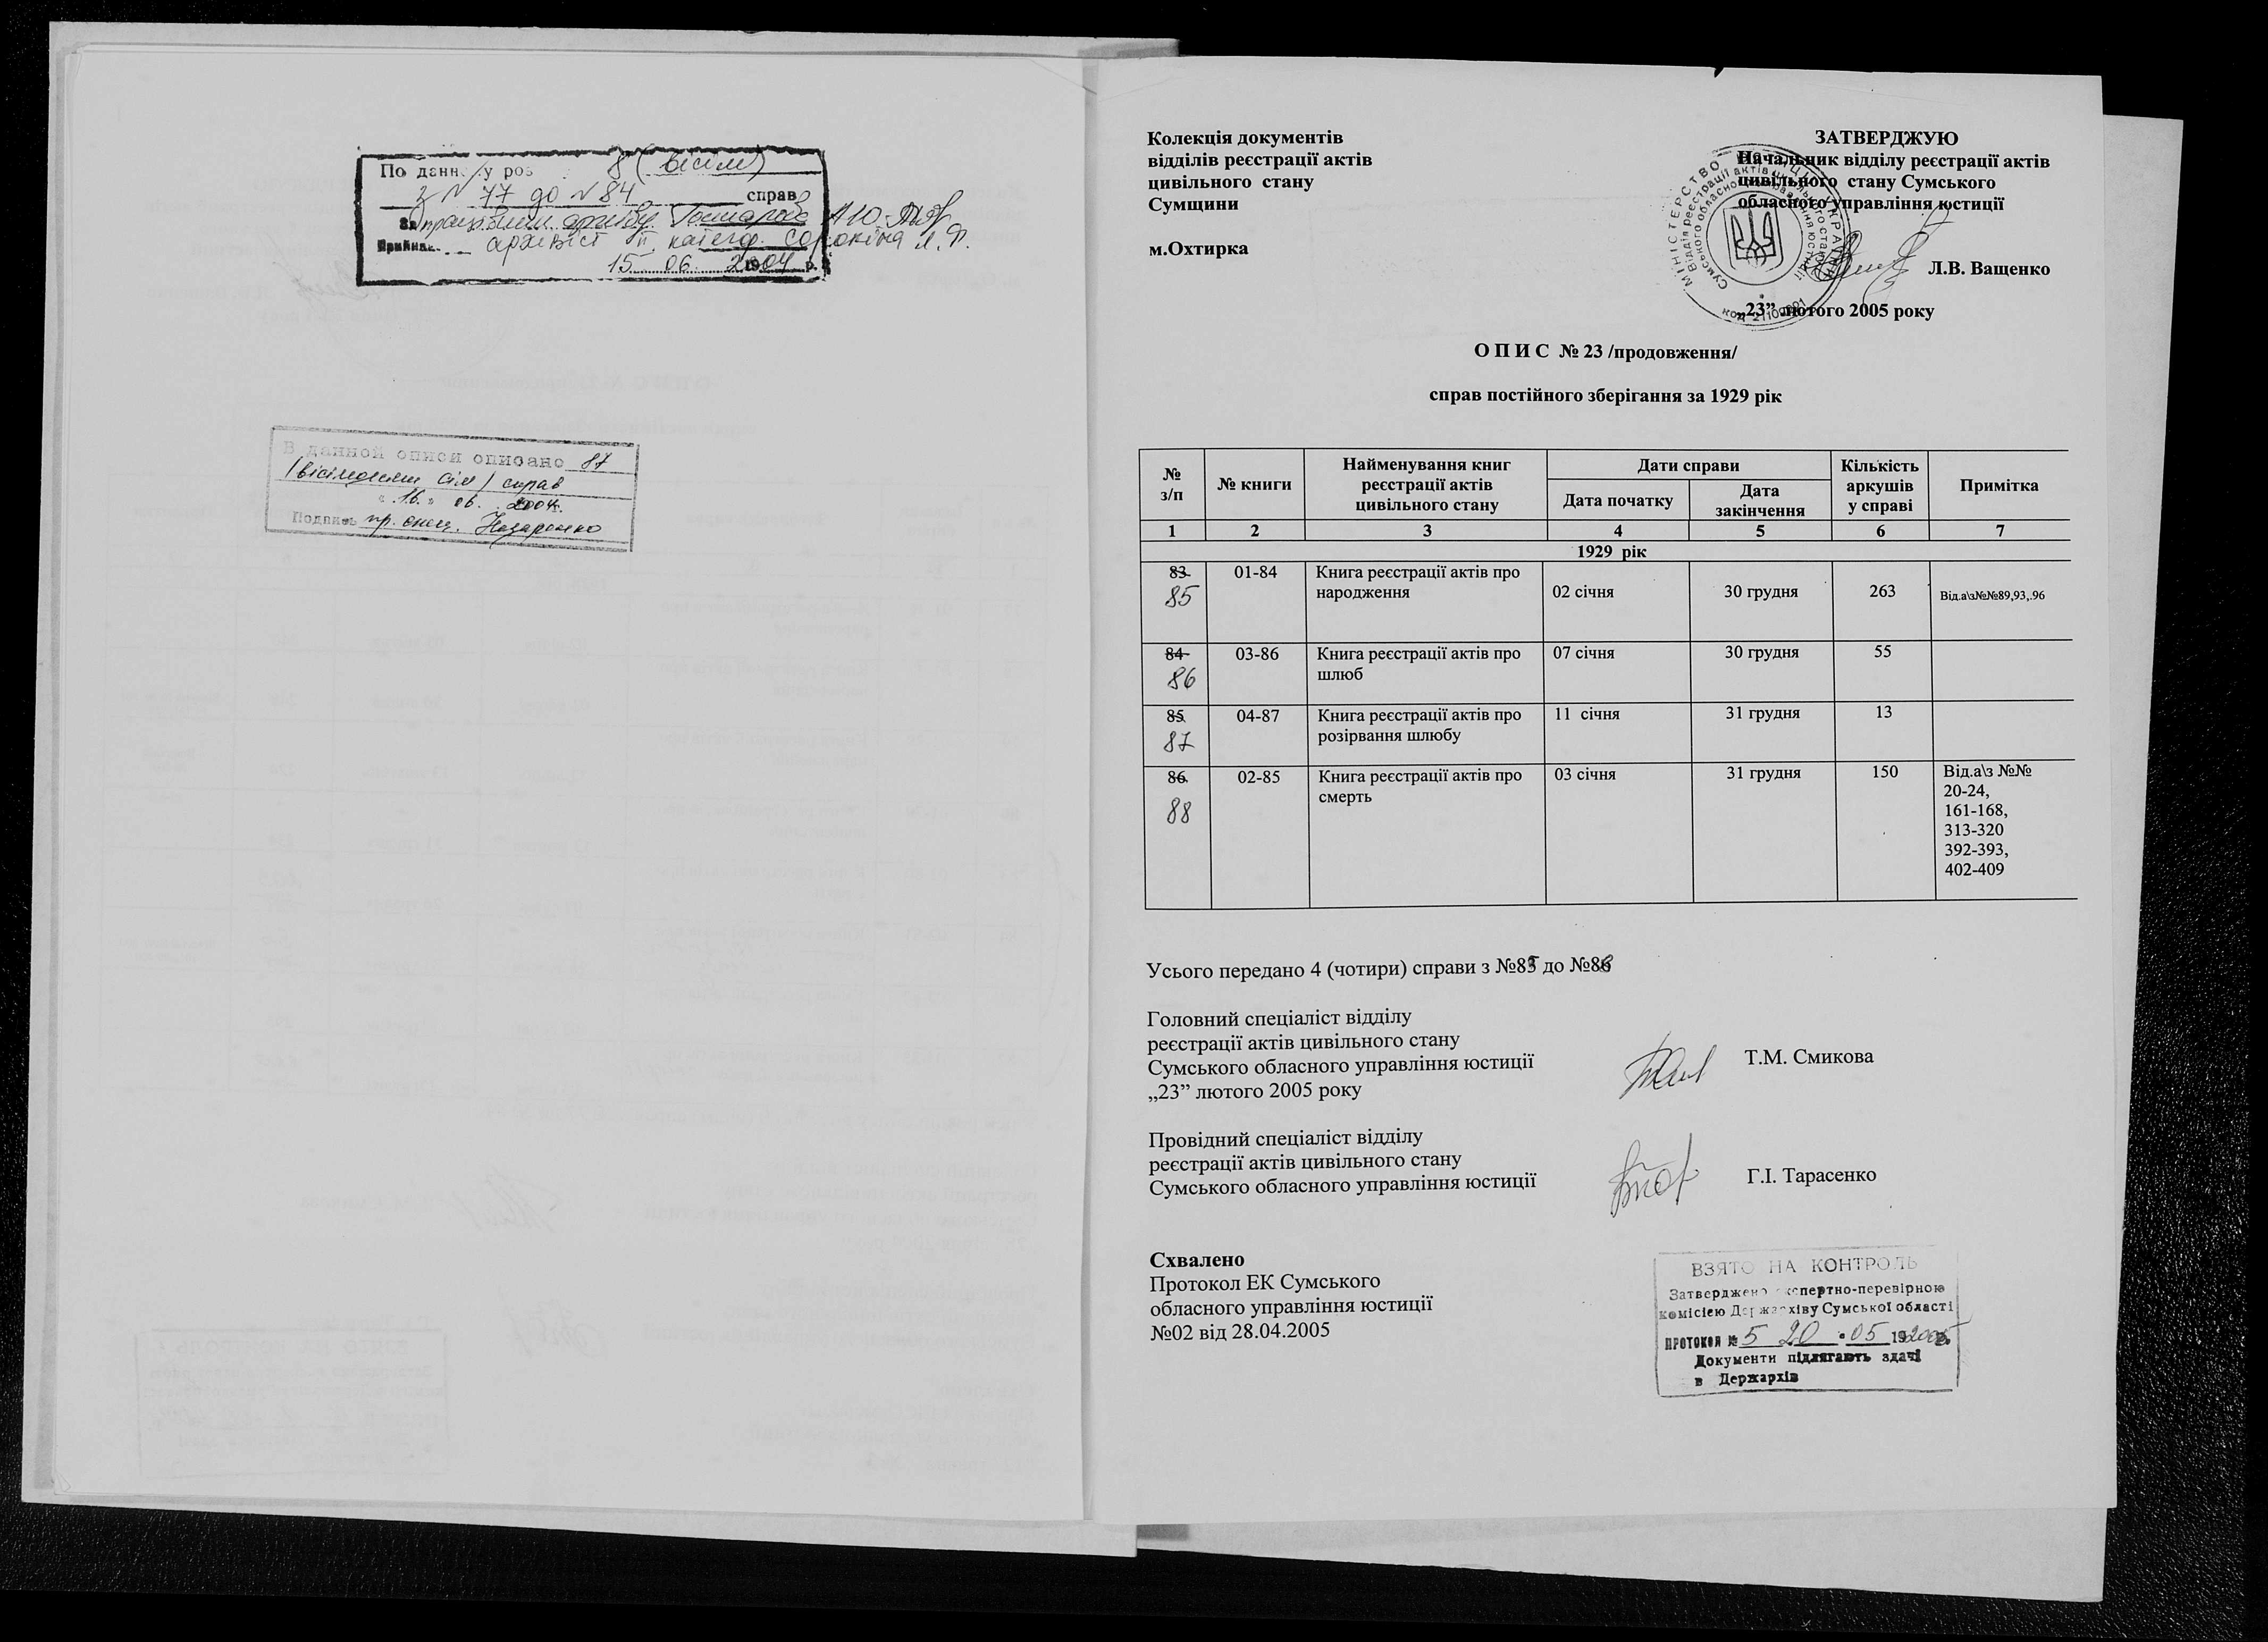 По данному роз 8 (вісім)
з № 77 до № 84 справ
архівіст II катего. Сорокіна Л.Ф.
15 06 2004 р.
В данной описи описано 87
/вісімдесят сім/ справ
"16" 06. 2004г.
Подпись пр. спец. Назаренко
Колекція документів
відділів реєстрації актів
цивільного стану
Сумщини
м.Охтирка
ЗАТВЕРДЖУЮ
Начальник відділу реєстрації актів
цивільного стану Сумського
обласного управління юстиції
Л.В. Ващенко
„23” лютого 2005 року
О П И С № 23 /продовження/
справ постійного зберігання за 1929 рік
№ з/п № книги Найменування книг реєстрації актів цивільного стану Дати справи Дата початку Дата закінчення Кількість аркушів у справі Примітка
1 2 3 4 5 6 7
1929 рік
83 01-84 Книга реєстрації актів про
85 народження 02 січня 30 грудня 263 Від.а\з№№89,93,.96
84 03-86 Книга реєстрації актів про 07 січня 30 грудня 55
86 шлюб
85 04-87 Книга реєстрації актів про 11 січня 31 грудня 13
87 розірвання шлюбу
86 02-85 Книга реєстрації актів про 03 січня 31 грудня 150 Від.а\з №№
88 смерть 20-24,
161-168,
313-320
392-393,
402-409
Усього передано 4 (чотири) справи з №85 до №88
Головний спеціаліст відділу
реєстрації актів цивільного стану
Сумського обласного управління юстиції Т.М. Смикова
„23” лютого 2005 року
Провідний спеціаліст відділу
реєстрації актів цивільного стану
Сумського обласного управління юстиції Г.І. Тарасенко
Схвалено
Протокол ЕК Сумського
обласного управління юстиції
№02 від 28.04.2005
ВЗЯТО НА КОНТРОЛЬ
Затверджено експертно-перевірною
комісією Держархіву Сумської області
ПРОТОКОЛ № 5 20 • 05 2005
Документи підлягають здачі
в Держархів